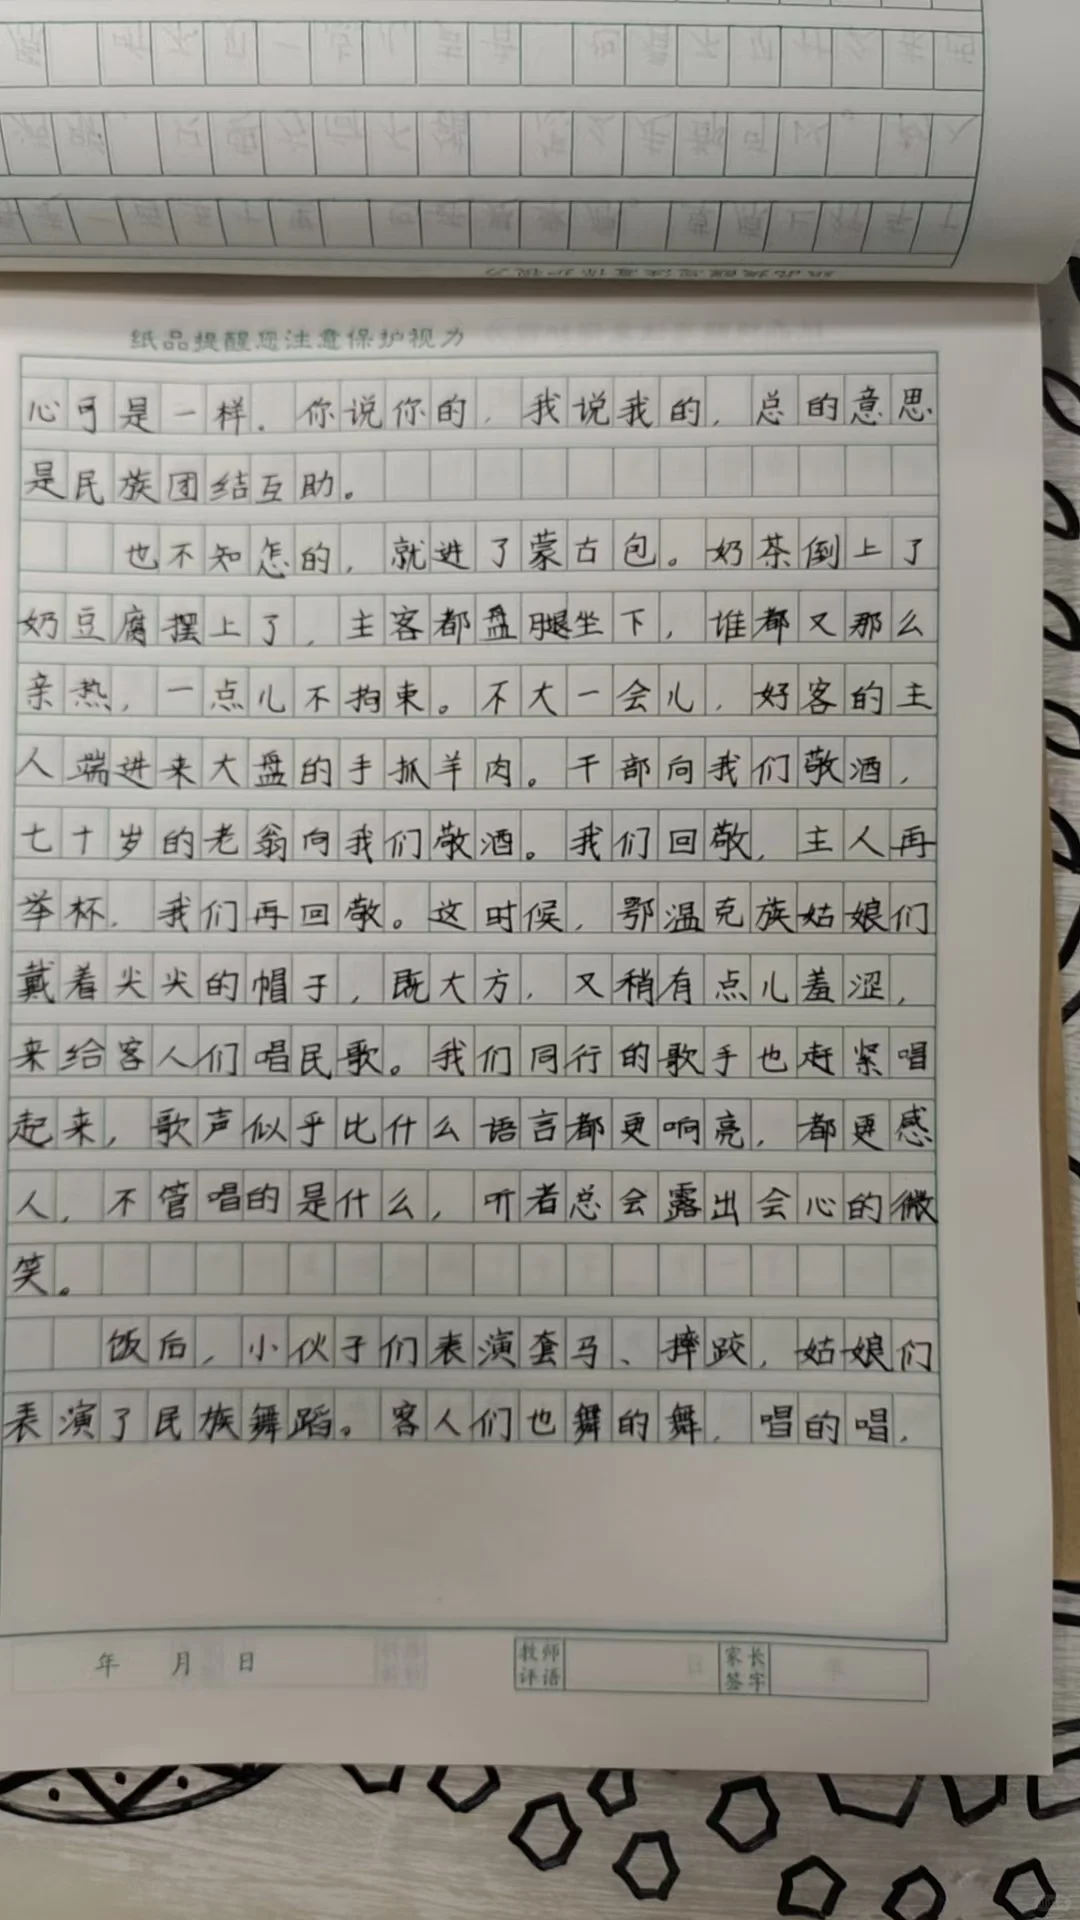 纸品提醒您注意保护视力
心可是一样。你说你的，我说我的，总的意思
是民族团结互助。
也不知怎的，就进了蒙古包。奶茶倒上了
奶豆腐摆上了，主客都盘腿坐下，谁都又那么
亲热，一点儿不拘束。不大一会儿，好客的主
人端进来大盘的手抓羊肉。干部向我们敬酒，
七十岁的老翁向我们敬酒。我们回敬，主人再
举杯，我们再回敬。这时候，鄂温克族姑娘们
戴着尖尖的帽子，既大方，又稍有点儿羞涩，
来给客人们唱民歌。我们同行的歌手也赶紧唱
起来，歌声似乎比什么语言都更响亮，都更感
人，不管唱的是什么，听者总会露出会心的微
笑。
饭后，小伙子们表演套马、摔跤，姑娘们
表演了民族舞蹈。客人们也舞的舞，唱的唱，
年 月 日
教师评语
家长签字